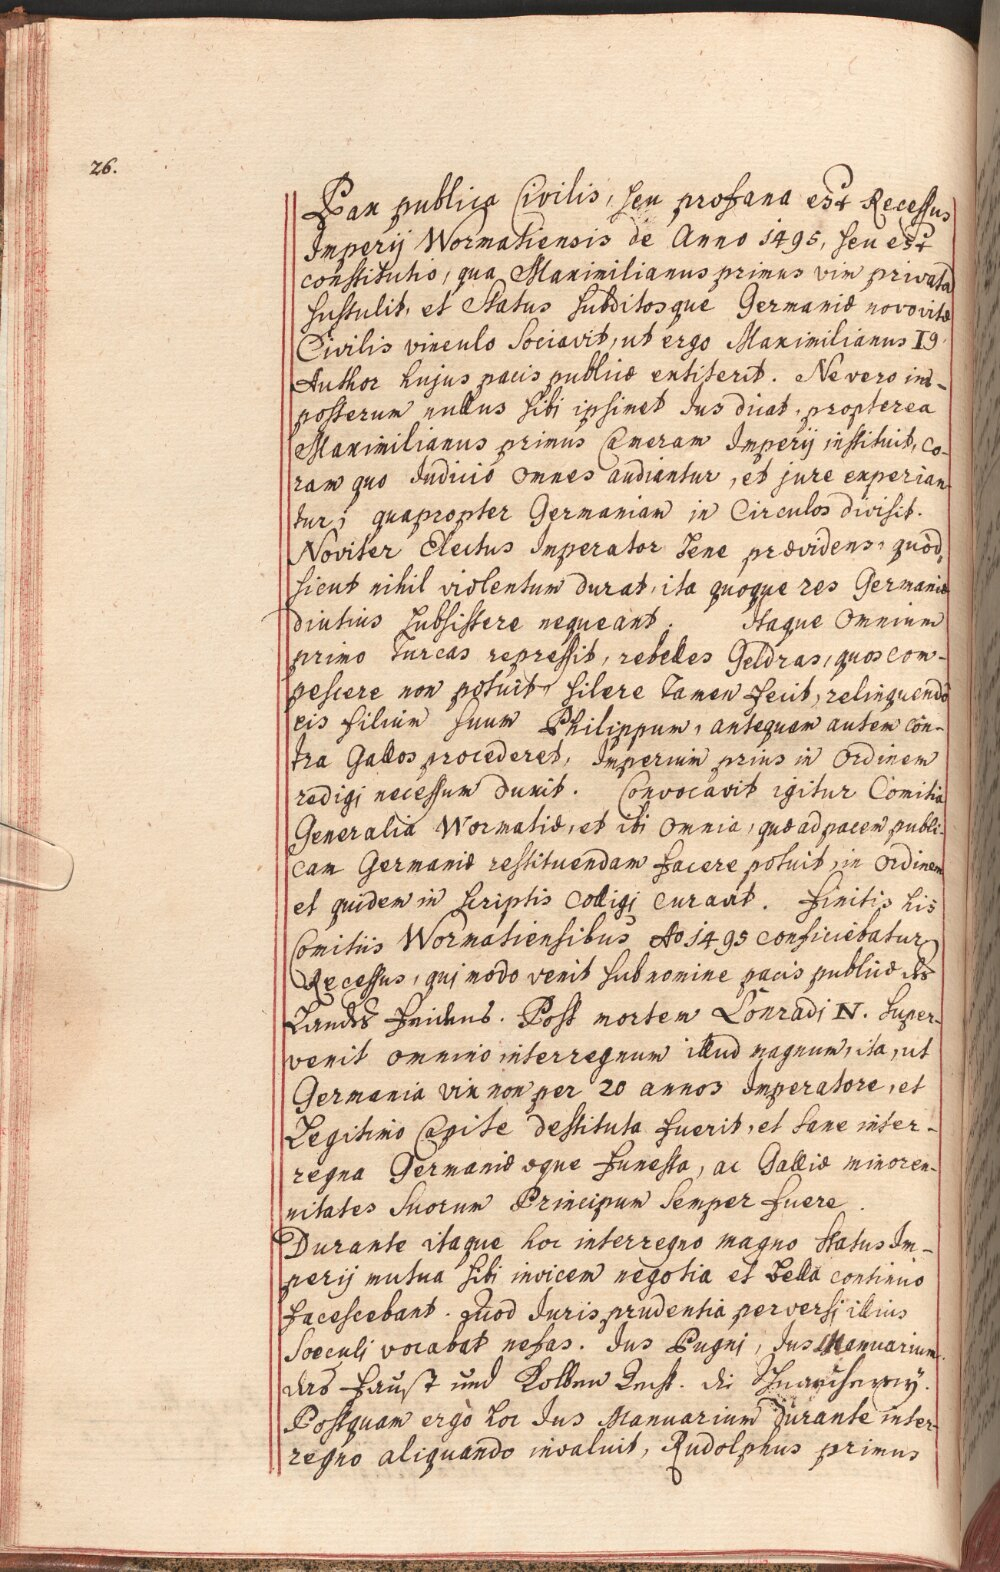 26.
Pax publica Civilis, seu profana est Recessus
Imperij Wormatiensis de Anno 1495, seu est
constitutio, qua Maximilianus primus vim privatã
sustulit, et Status subditosque Germaniæ novo vitæ
Civilis vinculo Sociavit, ut ergo Maximilianus I9
Author hujus pacis publicæ extiterit. Ne vero im-
posterum nullus sibi ipsimet Jus dicat, propterea
Maximilianus primus Cameram Imperij instituit, co-
ram quo Judicio omnes audiantur, et jure experian-
tur; quapropter Germaniam in Circulos divisit.
Noviter Electus Imperator bene prævidens, quòd,
sicut nihil violentum durat, ita quoque res Germaniæ
diutius subsistere nequeant. Itaque Omnium
primo Turcas repressit, rebelles Geldras, quos com-
pescere non potuit, silere tamen fecit, relinquendo
eis filium suum Philippum, antequam autem con-
tra Gallos procederet, Imperium prius in Ordinem
redigi necessum duxit. Convocavit igitur Comitia
Generalia Wormatiæ, et ibi omnia, quæ ad pacem publi-
cam Germaniæ restituendam facere potuit, in Ordinem
et quidem in scriptis colligi curavit. Finitis his
Comitiis Wormatiensibus Ao 1495 conficiebatur
Recessus, qui modo venit sub nomine pacis publicæ des
Landts fridens. Post mortem Conradi N. super-
venit omnino interregnum illud magnum, ita, ut
Germania vix non per 20 annos Imperatore, et
Legitimo Capite destituta fuerit, et sane inter-
regna Germaniæ æque funesta, ac Galliæ minoren-
nitates Suorum Principum semper fuere.
Durante itaque hoc interregno magno status Im-
perij mutua sibi invicem negotia et bella continuo
facescebant. Quod Jurisprudentia perversi illius
Sæculi vocabat nefas. Jus Pugni, Jus Manuarium.
das Faust und Kolben Recht. die
Postquam ergo hoc Jus Manuarium durante inter-
regno aliquando invaluit, Rudolphus primus